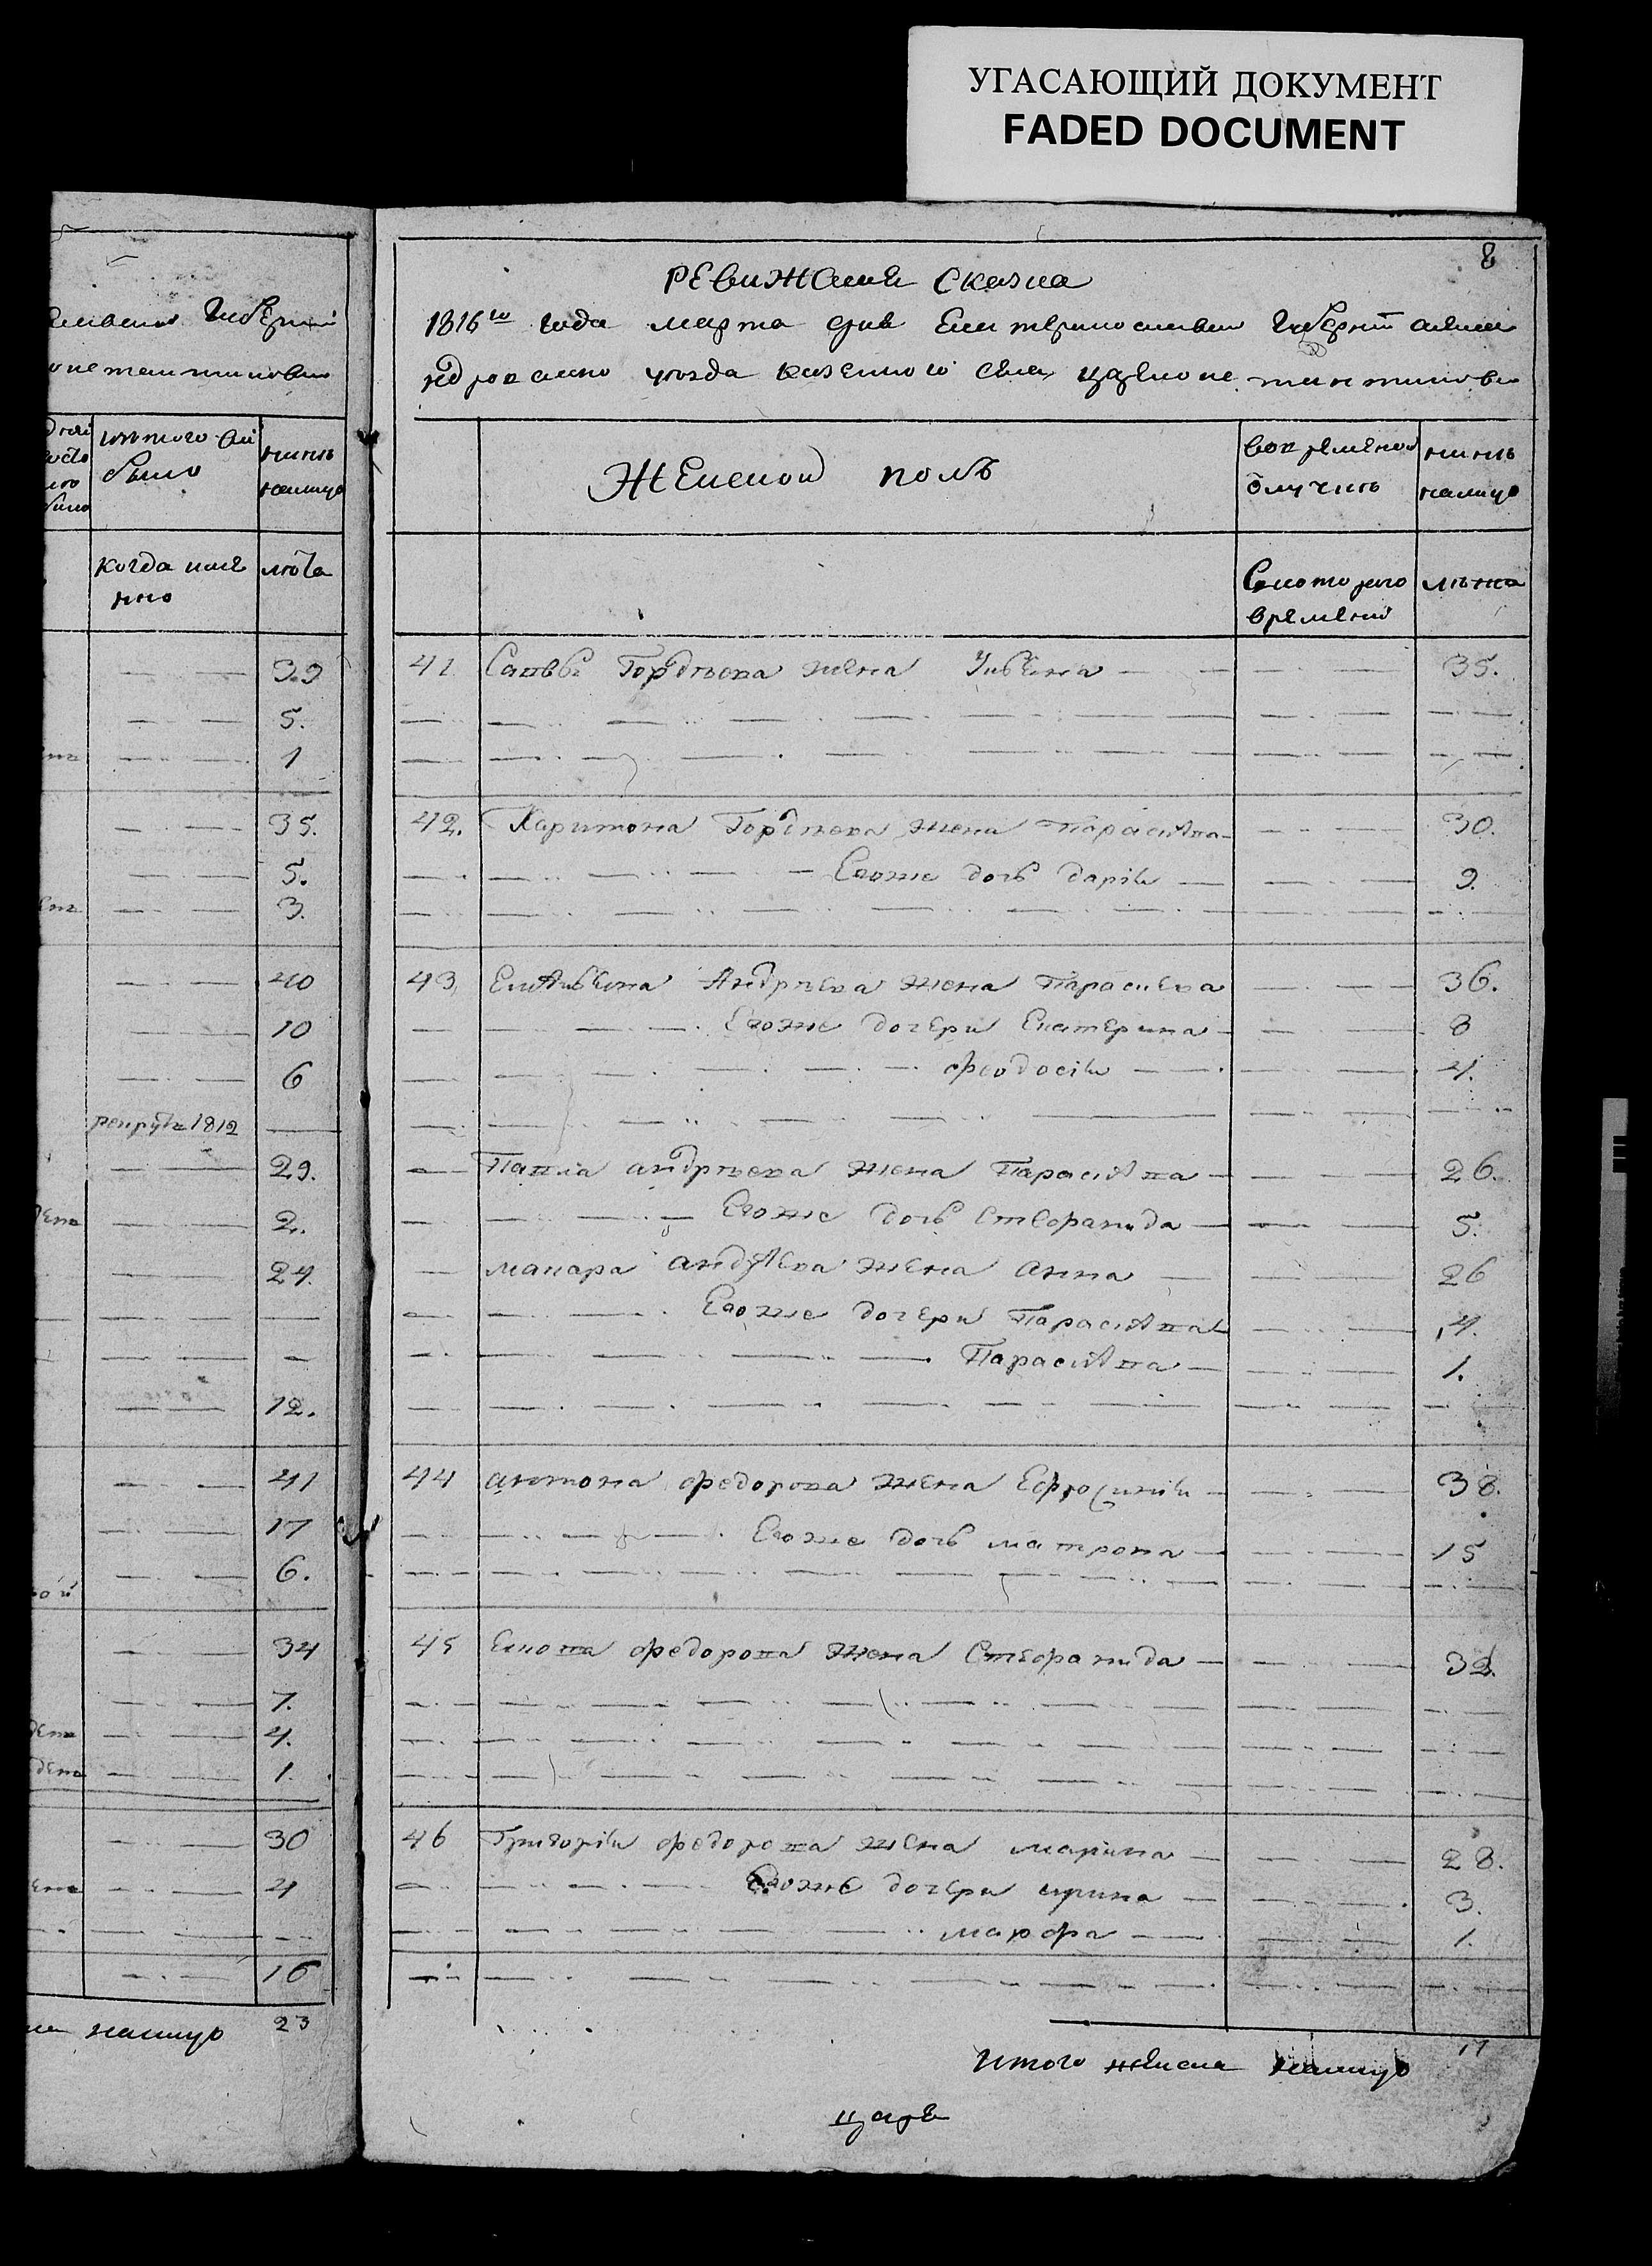 УГАСАЮЩИЙ ДОКУМЕНТ
FADED DOCUMENT
губерніи
изтого
было
нынѣ
налицо
когда имѣ
нно
лѣта
39
5.
1
35.
5.
3.
40
10
6
рекрутъ 1812
29.
2.
24.
12.
41
17
6.
34
7.
4.
1.
30
4
16
налицо 23
8
Ревижская Сказка
1816го года марта дня Екатеринославской губерніи алекса
ндровского уѣзда казенного села цареконстантиновки
Женской полъ
вовременной
отлучкѣ
нынѣ
налицо
Скоторого
времени
лѣта
41 Саввы Гордѣева жена Улвяна 35.
42. Харитона Гордѣева жена Парасковва 30.
Евоже дочь дарія 9.
43 Андрѣева жена Парасцева 36.
Евоже дочери Екатерина 8
феодосія 4.
Павла андрѣева жена Парасковва 26.
Евоже дочь Стефанида 5.
макара андрѣева жена анна 26
Евоже дочери Парасковва 4.
Парасковва 1.
44 антона федорова жена Ефросинія 38.
Евоже дочь матрона 15
45 федорова жена Стефанида 32.
46 Григорія федорова жена марина 28.
Евоже дочери ирина 3.
мавра 1.
Итого женска налицо 17
царе